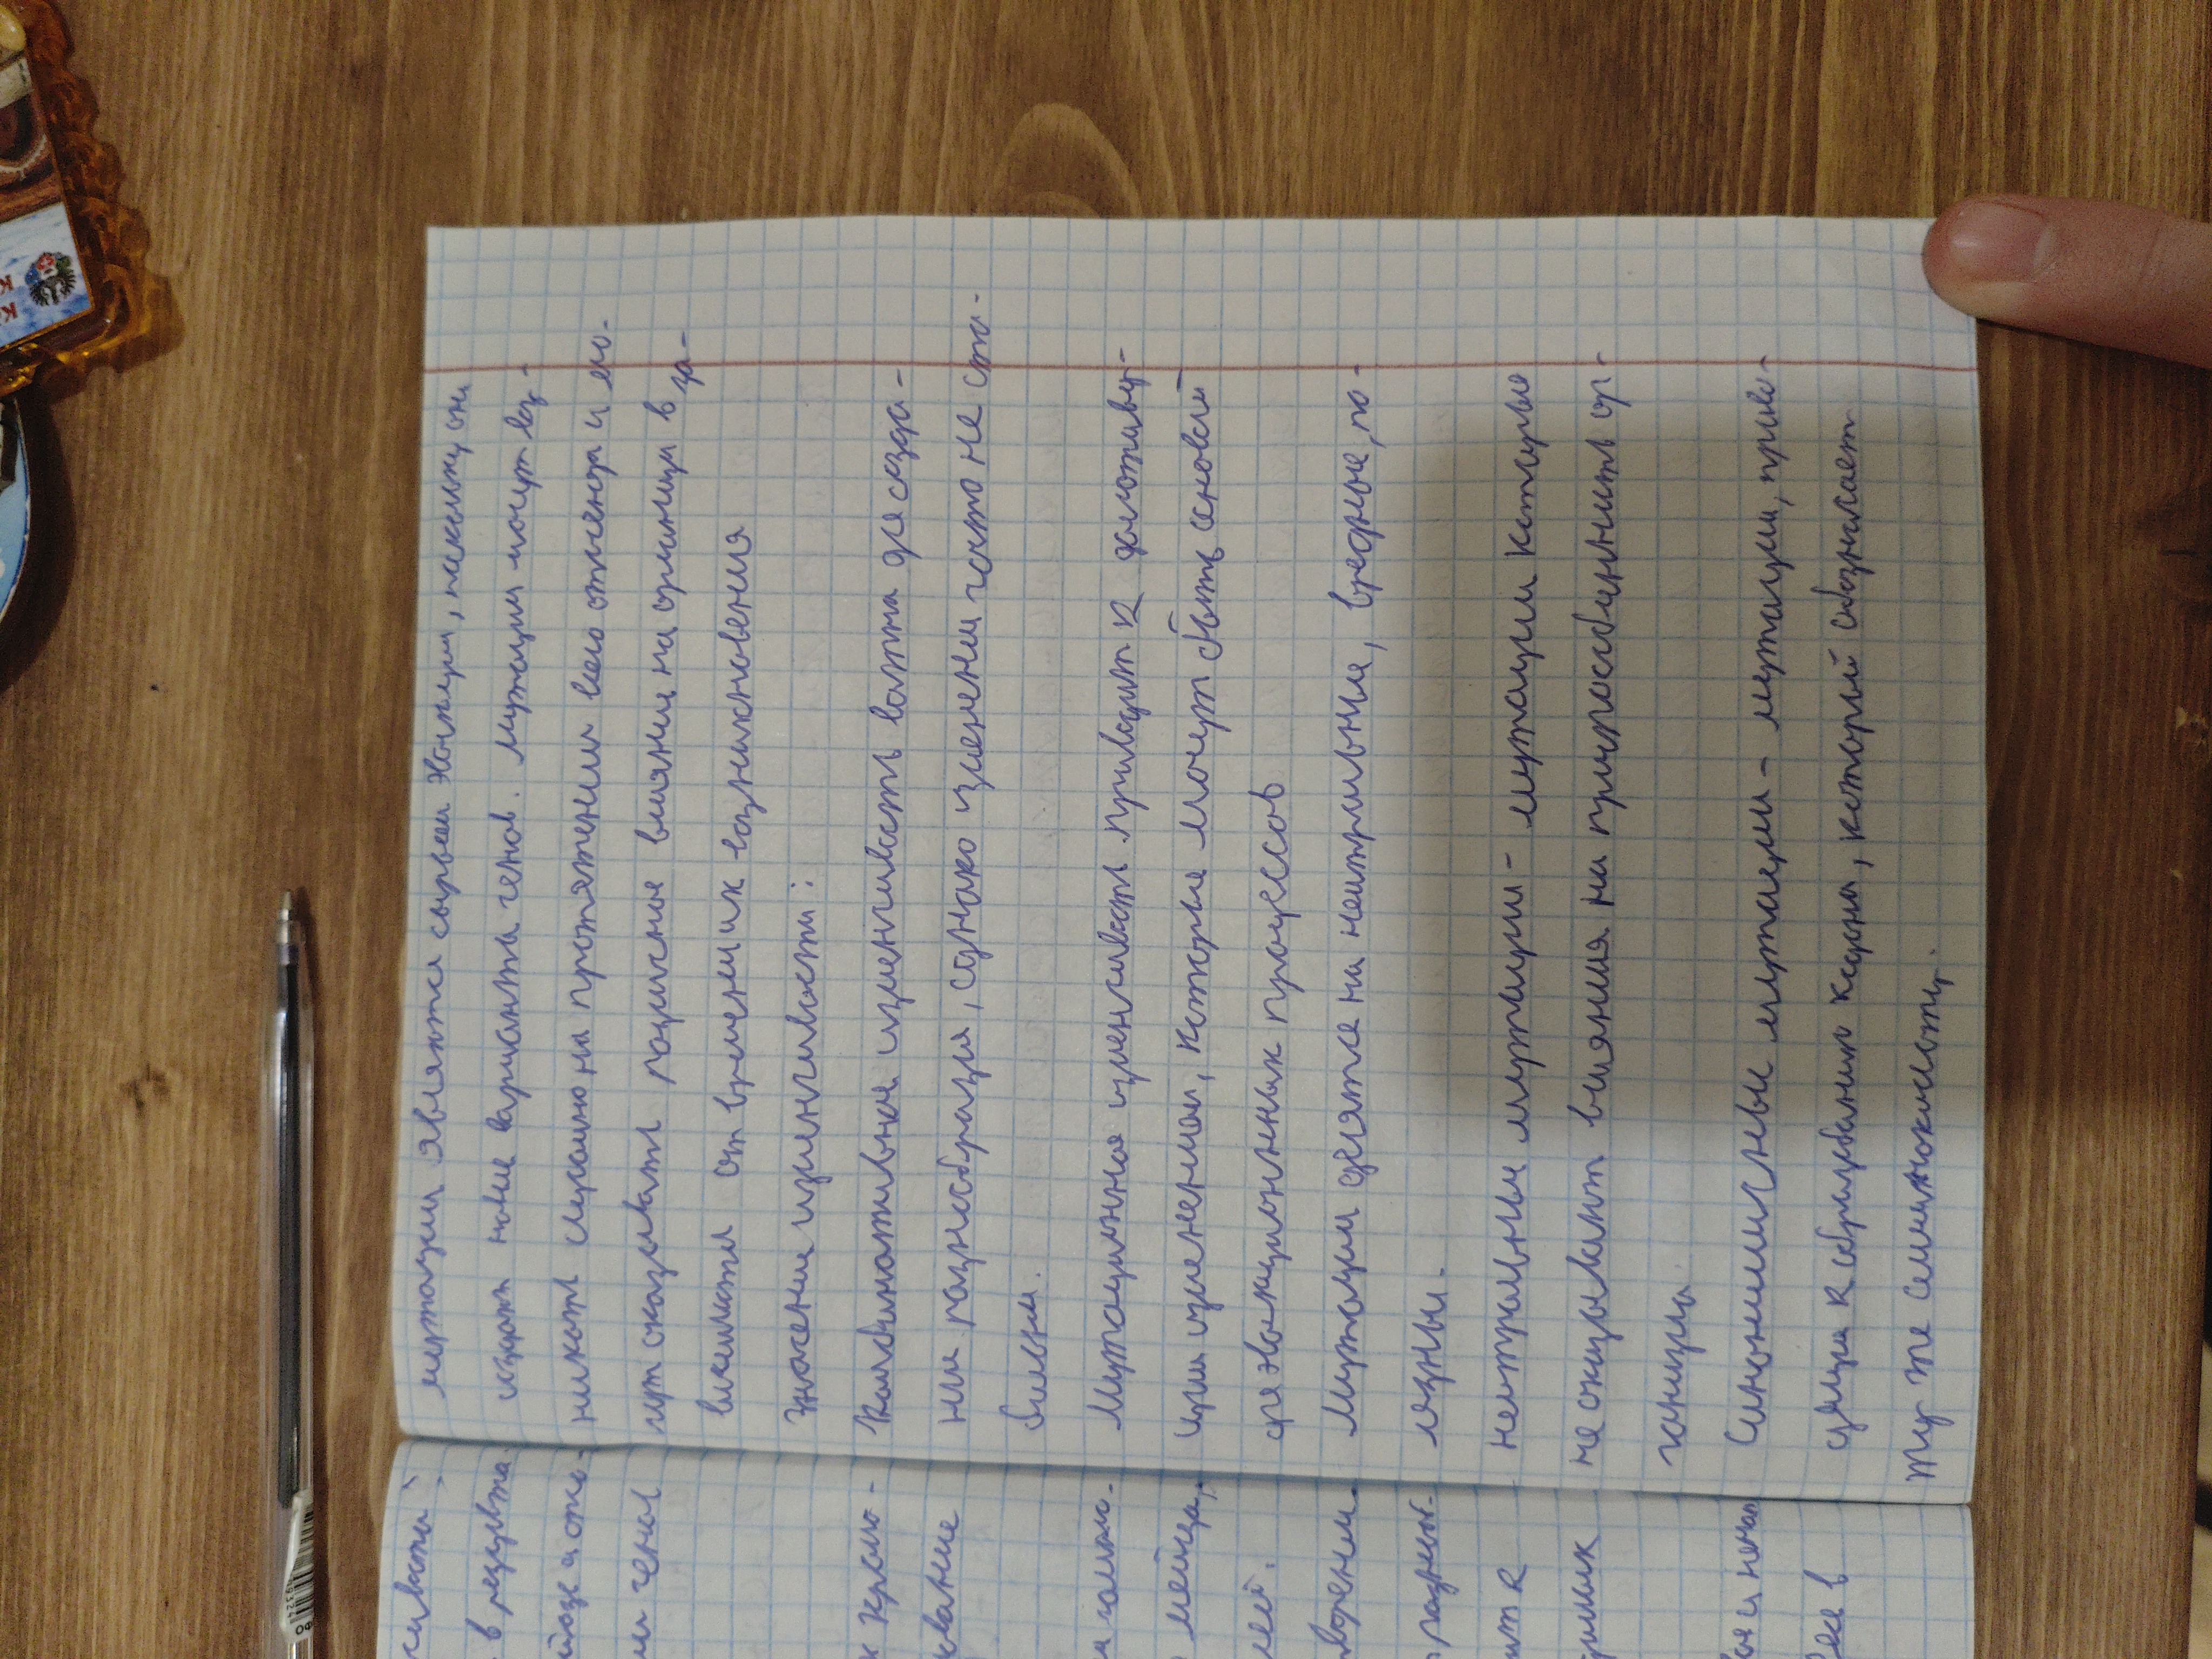 мутации являются сырьем эволюции, поскольку они
создают новые варианты генов. Мутации могут воз-
никать случайно на протяжении всего онтогенеза и мо-
гут оказывать различное влияние на организм в за-
висимости от времени их возникновения
Значение изменчивости:
Комбинативная изменчивость важна для созда-
ния разнообразия, однако изменения часто не ста-
бильны.
Мутационная изменчивость приводит к долгоживу-
щим изменениям, которые могут быть основой
для эволюционных процессов
Мутации делятся на нейтральные, вредные, по-
лезные.
нейтральные мутации - мутации которые
не оказывают влияния на приспособленность ор-
ганизма
Синонимичные мутации - мутации, приво-
дящие к образованию кодона, который обозначает
ту же аминокислоту.
сивости;
в результа
йозе и опло-
ии генов
х кроссо-
ование
мейоза,
лей.
ворении.
разнит-
ит к